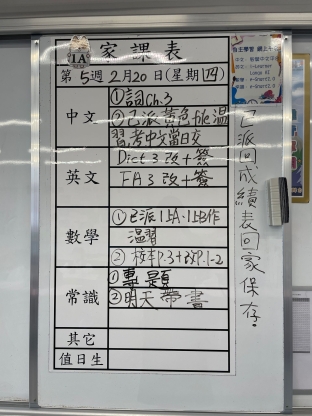 1A
家課表
第5週2月20日(星期四)
中文
①詞ch.3
②已派黃色file溫
習,考中文當日交
英文
Dict 3 改+簽
FA 3 改+簽
數學
①已派1LA-1LB作
溫習
②
常識
①專題
②明天帶書
其它
值日生
已派回成績表回家保存.
自主學習